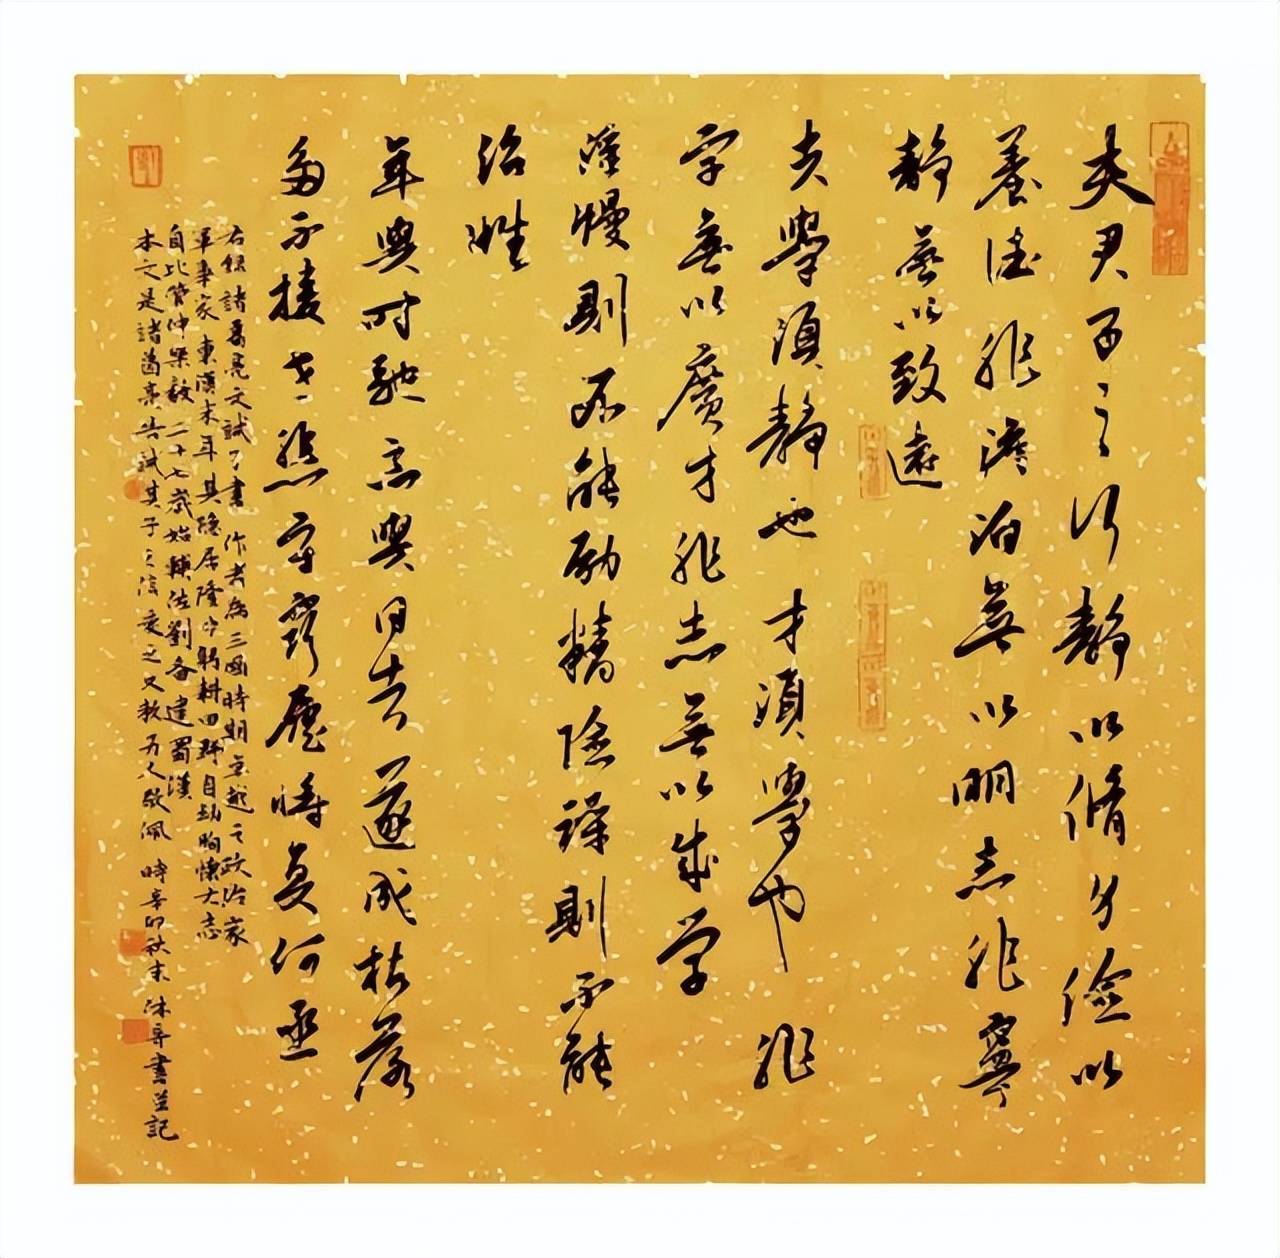 夫君子之行靜以脩身儉以
養德非澹泊無以明志非寧
靜無以致遠
夫學須靜也才須學也非
学無以廣才非志無以成学
滛慢則不能勵精險躁則不能
治性
年與時馳意與日去遂成枯落
多不接世悲守窮廬將復何及
右録諸葛亮文誡子書作者為三國時期卓越之政治家
軍事家東漢末年其隐居隆中躬耕田野自幼胸懷大志
自比管仲樂毅二十七歲始輔佐劉备建蜀漢
本文是諸葛亮告誡其子之信爱之又教为人敬佩時辛卯秋末沐寻書並記